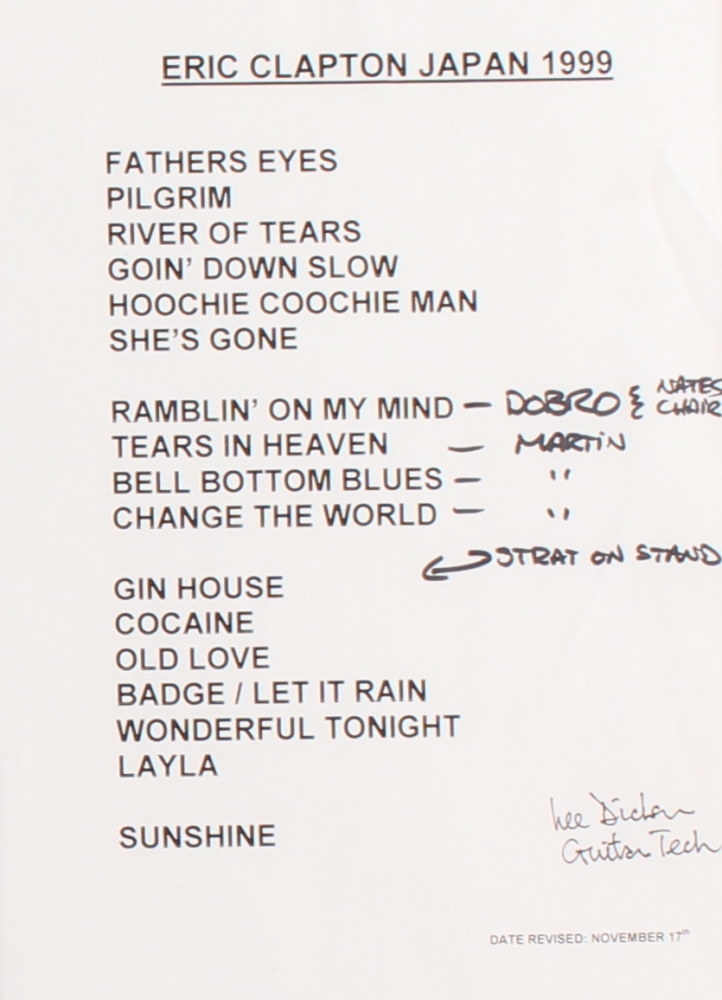 ERIC CLAPTON JAPAN 1999
FATHERS EYES
PILGRIM
RIVER OF TEARS
GOIN' DOWN SLOW
HOOCHIE COOCHIE MAN
SHE'S GONE
RAMBLIN' ON MY MIND — DOBRO & NATES CHAIR
TEARS IN HEAVEN — MARTIN
BELL BOTTOM BLUES — "
CHANGE THE WORLD — "
STRAT ON STAND
GIN HOUSE
COCAINE
OLD LOVE
BADGE / LET IT RAIN
WONDERFUL TONIGHT
LAYLA
SUNSHINE
Lee Dickson
Guitar Tech
DATE REVISED: NOVEMBER 17th